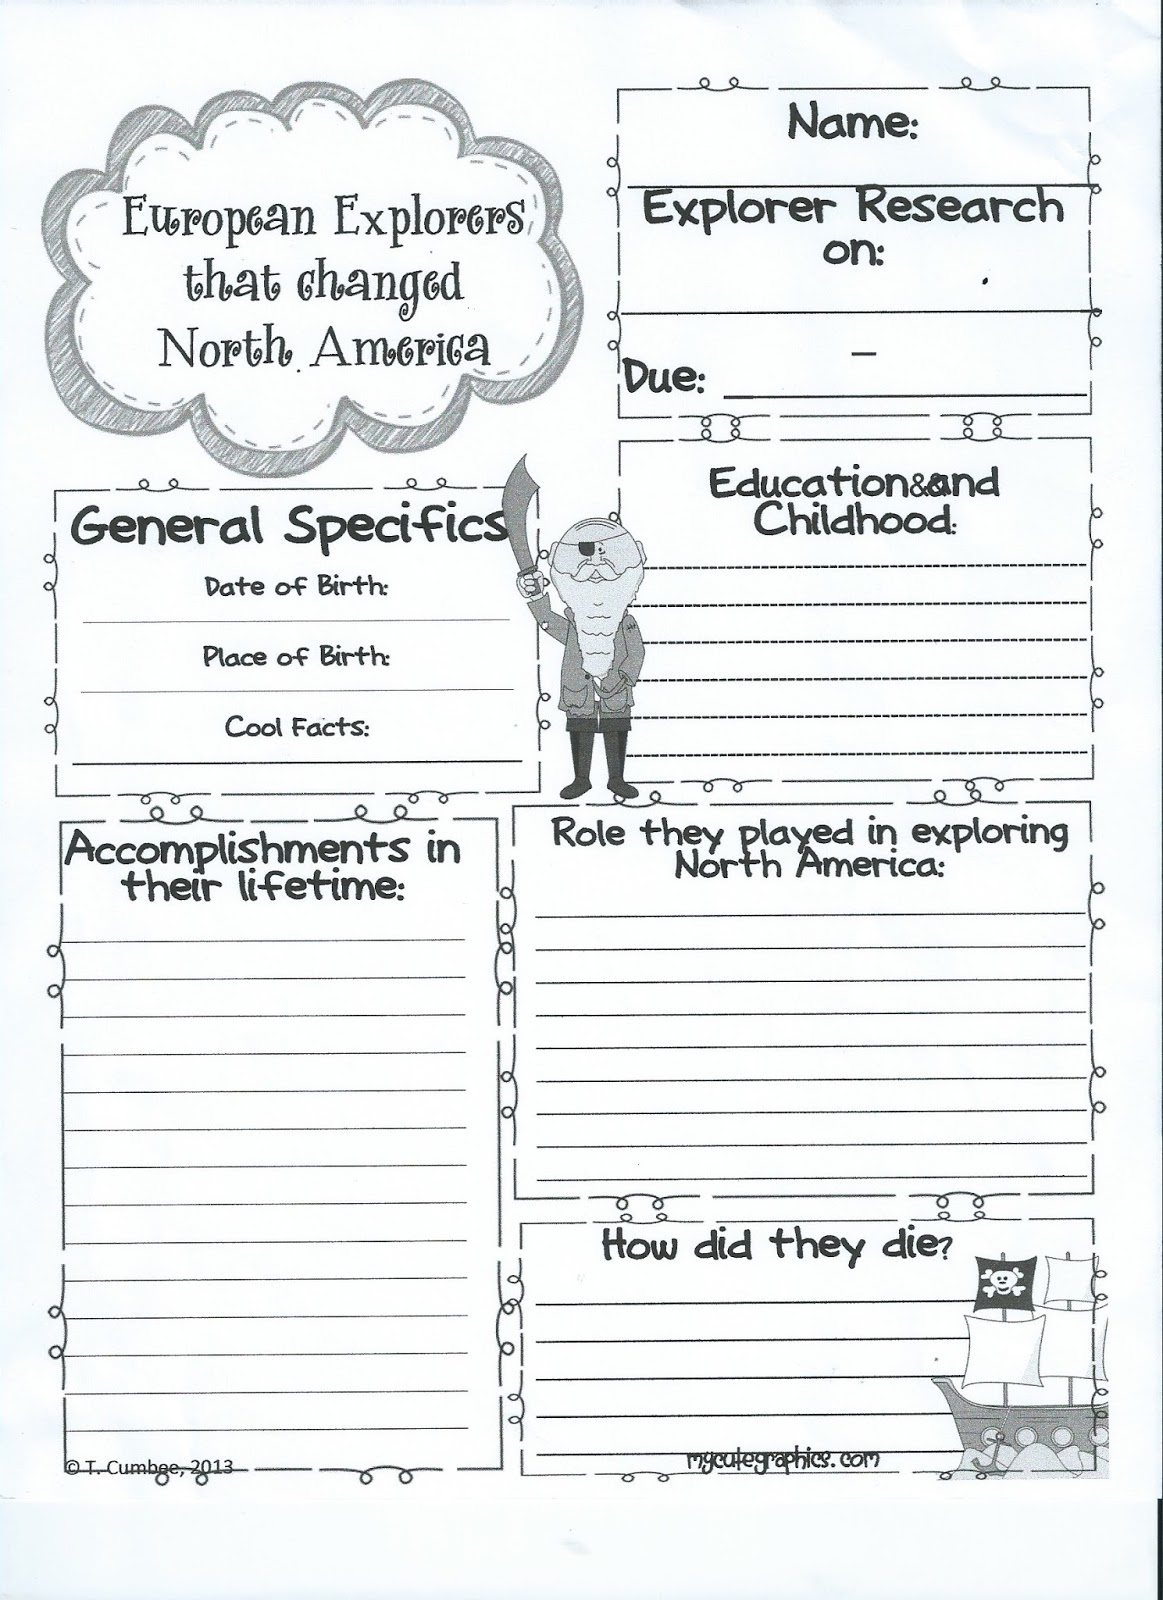 European Explorers
that changed
North America
Name:
Explorer Research
on:
Due:
General Specifics
Date of Birth:
Place of Birth:
Cool Facts:
Education&&and
Childhood:
Accomplishments in
their lifetime:
Role they played in exploring
North America:
How did they die?
mycutegraphics.com
© T. Cumbee, 2013